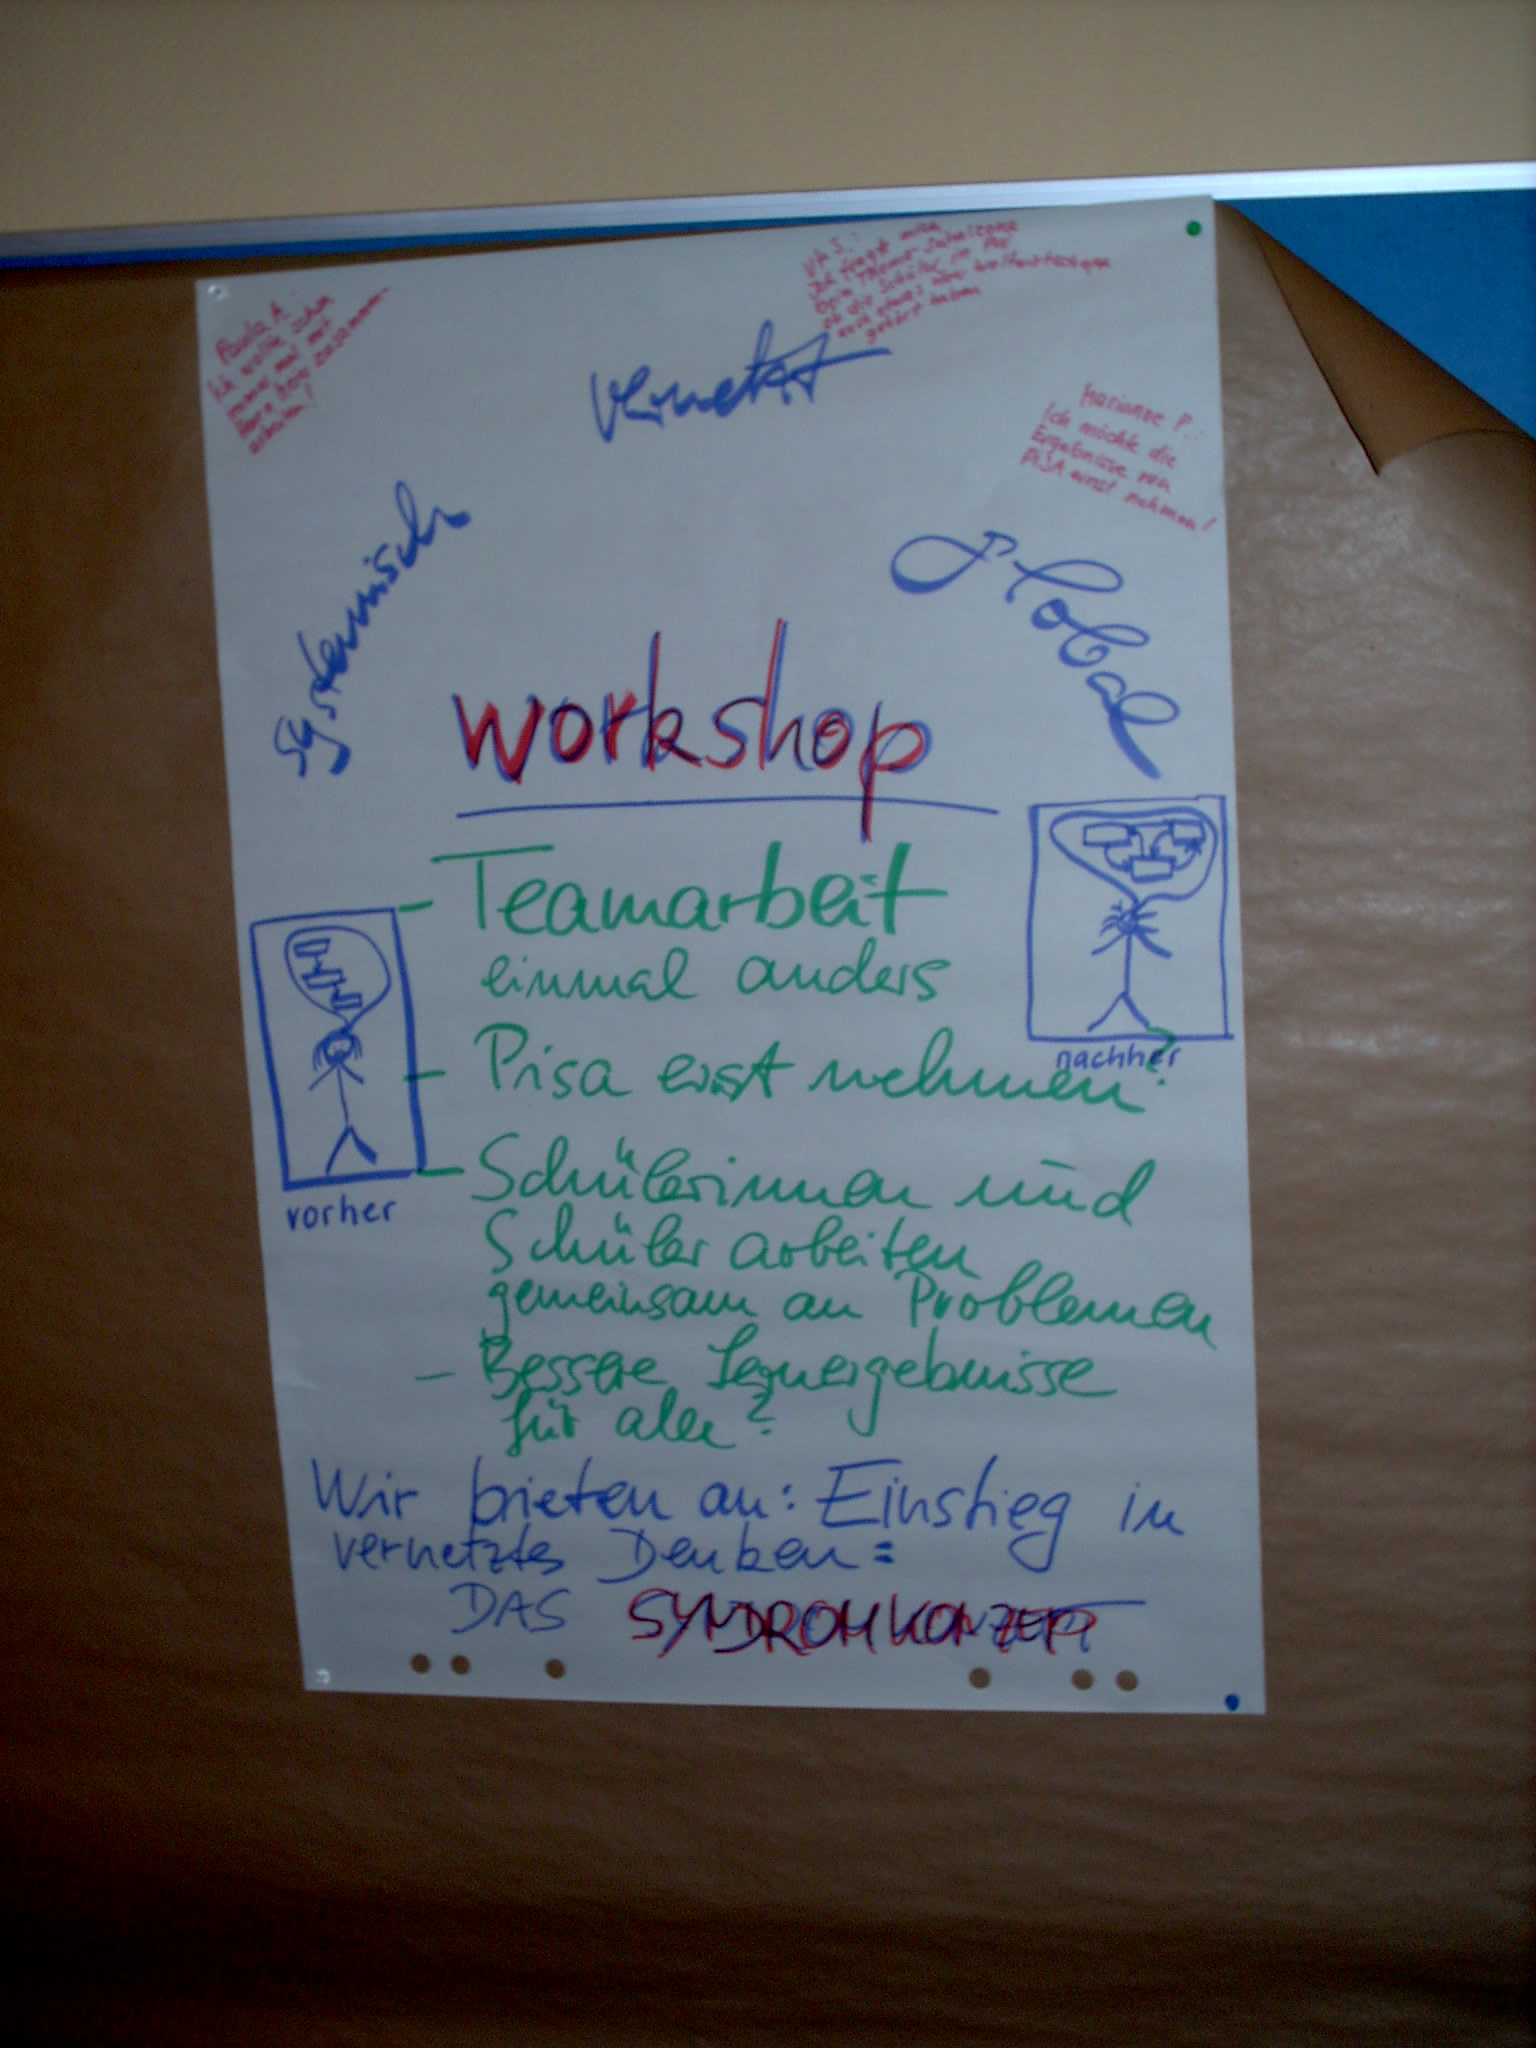 Paula A
Ich wollte schon
immer mal mit
Herrn zusammen-
arbeiten!
Ute S.:
Ich fragt mich
beim Thema
ob die Schüler in
auch etwas über
gehört haben
vernetzt
Marianne P.:
Ich möchte die
Ergebnisse von
PISA ernst nehmen!
Systemisch
Global
Workshop
- Teamarbeit
einmal anders
- Pisa ernst nehmen?
- Schülerinnen und
Schüler arbeiten
gemeinsam an Problemen
- Bessere Lernergebnisse
für alle?
vorher
nachher
Wir bieten an: Einstieg in
vernetztes Denken:
DAS SYNDROMKONZEPT